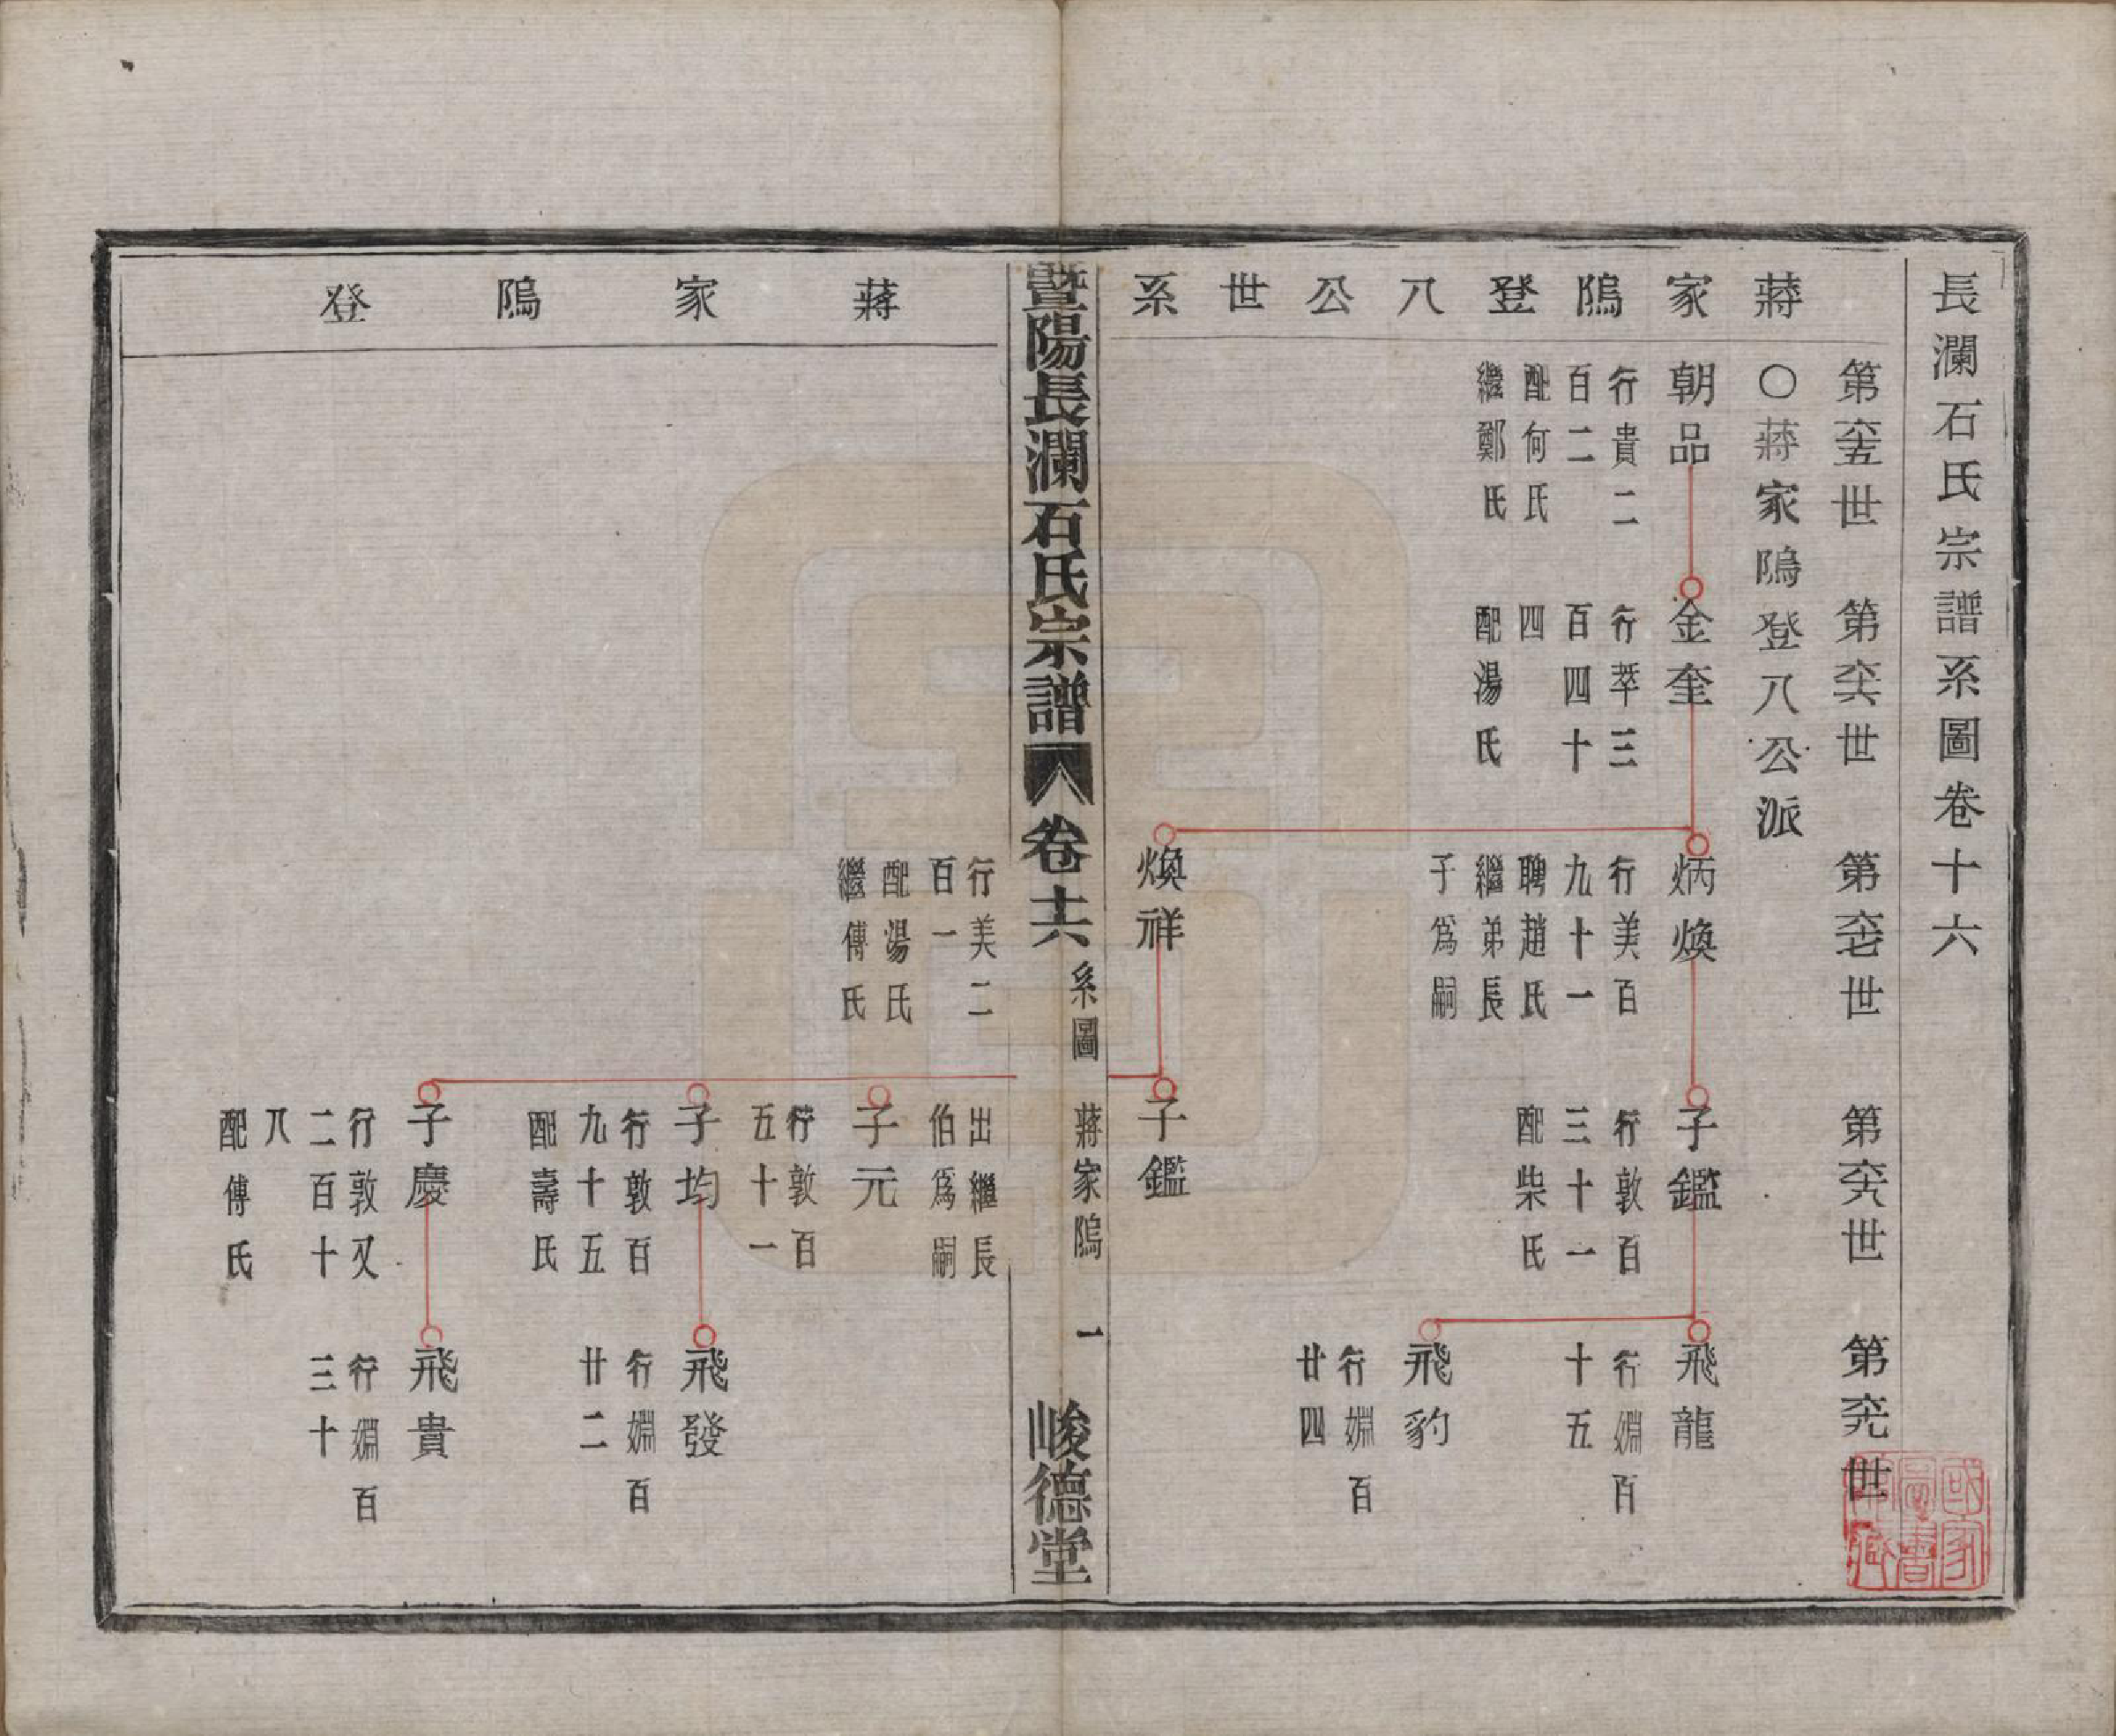 長瀾石氏宗譜系圖卷十六
蔣家隖登八公世系
第六十五世
第六十六世
第六十七世
第六十八世
第六十九世
〇蔣家隖登八公派
朝品
行貴二
百二
配何氏
繼鄭氏
金奎
行萃三
百四十
四
配湯氏
炳煥
行美百
九十一
聘趙氏
繼弟長
子爲嗣
子鑑
行敦百
三十一
配柴氏
飛龍
行嫺百
十五
飛豹
行嫺百
廿四
煥祥
子鑑
暨陽長瀾石氏宗譜
卷十六
系圖
蔣家隖
一
峻德堂
蔣家隖登
行美二
百一
配湯氏
繼傅氏
出繼長
伯爲嗣
子元
行敦百
五十一
子均
行敦百
九十五
配壽氏
飛發
行嫺百
廿二
子慶
行敦又
二百十
八
配傅氏
飛貴
行嫺百
三十
國家圖書館藏